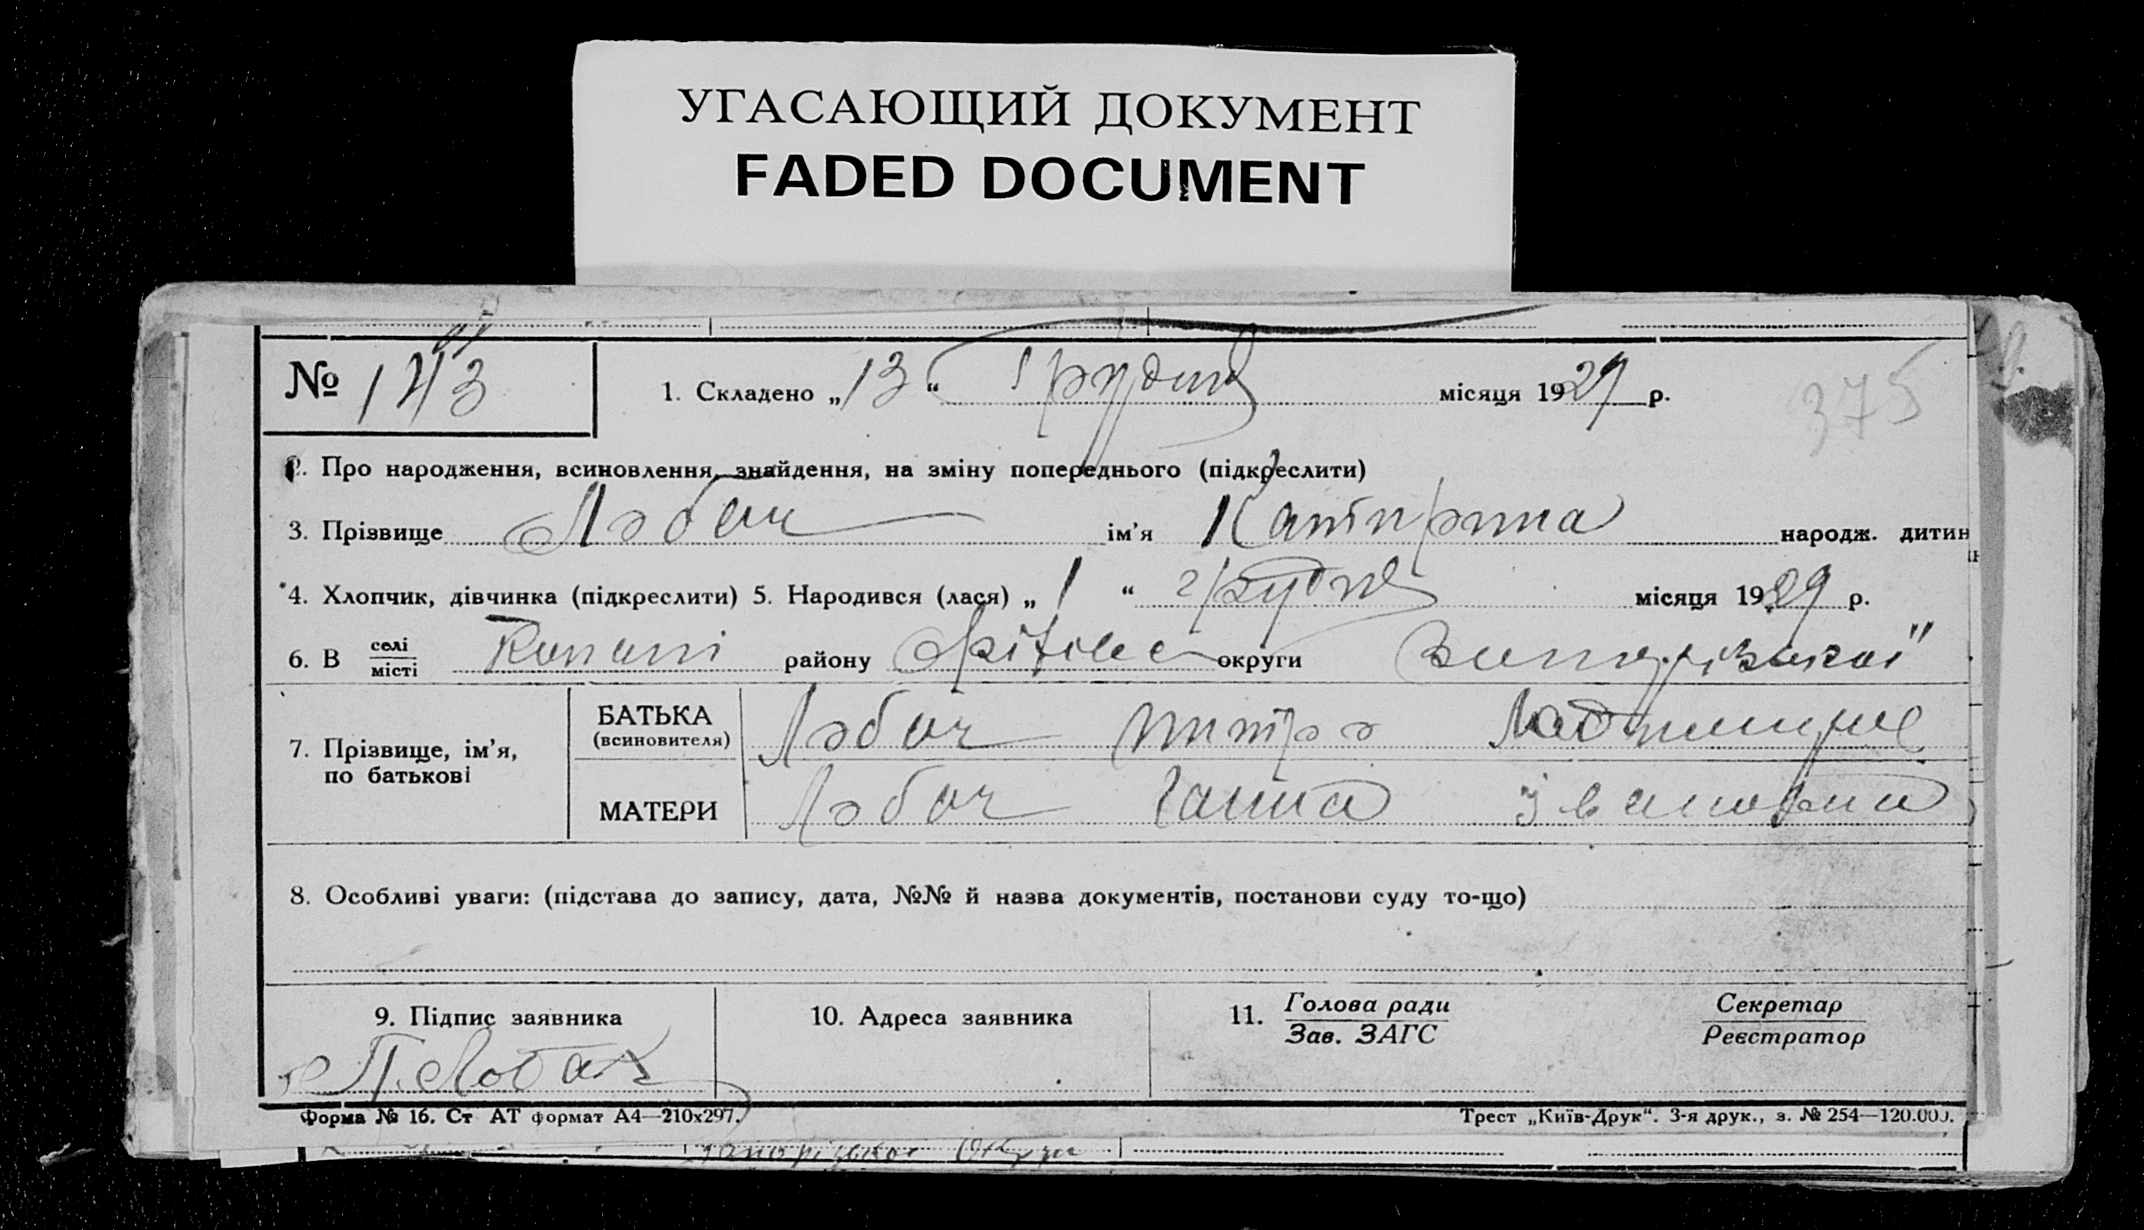 УГАСАЮЩИЙ ДОКУМЕНТ
FADED DOCUMENT
№ 143
1. Складено „13“ Грудня місяця 1929 р.
375
2. Про народження, всиновлення, знайдення, на зміну попереднього (підкреслити)
3. Прізвище Лобач ім'я Катирина народж. дитин
4. Хлопчик, дівчинка (підкреслити) 5. Народився (лася) „1“ грудня місяця 1929 р.
6. В селі/місті Копани району Оріхівс округи Запорізької
7. Прізвище, ім'я, по батькові
БАТЬКА (всиновителя) Лобач
МАТЕРИ Лобач Ганна Івановна
8. Особливі уваги: (підстава до запису, дата, №№ й назва документів, постанови суду то-що)
9. Підпис заявника
П. Лобач
10. Адреса заявника
11. Голова ради / Зав. ЗАГС
Секретар / Реєстратор
Форма № 16. Ст АТ формат А4—210х297.
Трест „Київ-Друк“. 3-я друк., з. № 254—120.000.
Запорізької Округи